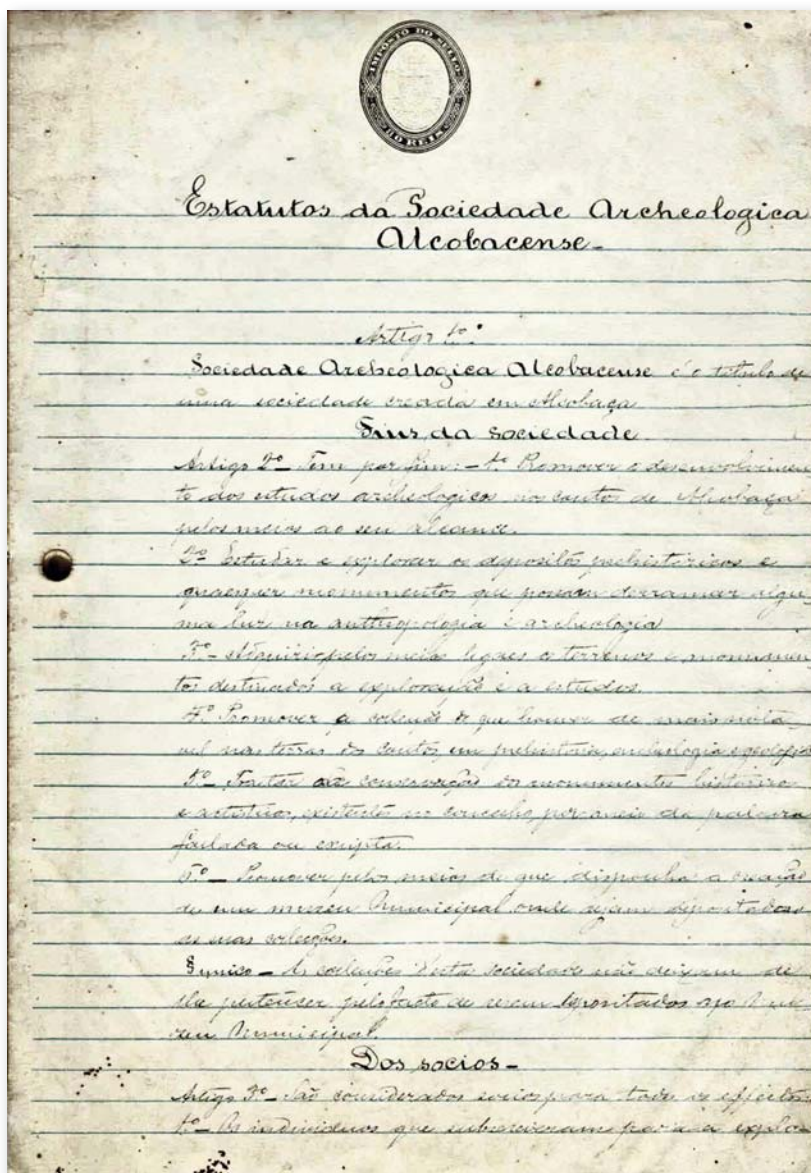 IMPOSTO DO SELLO
REIS
Estatutos da Sociedade Archeologica
Alcobacense -
Artigo 1º
Sociedade Archeologica Alcobacense é o titulo de
uma sociedade creada em Alcobaça
Fins da sociedade
Artigo 2º - Tem por fim: - 1º Promover o desenvolvimen
to dos estudos archeologicos nos coutos de Alcobaça
pelos meios ao seu alcance.
2º Estudar e explorar os depositos prehistoricos e
quaesquer monumentos que possam derramar algu
ma luz na anthropologia e archeologia
3º - Adquirir pelos meios legaes os terrenos e monumen
tos destinados a exploração e a estudos.
4º Promover a colecção do que houver de mais nota
vel nas terras dos coutos em prehistoria, archeologia e geologia
5º - Tratar da conservação dos monumentos historicos
e artisticos, existentes no concelho, por meio da palavra
fallada ou escripta.
5º - Promover pelos meios de que disponha a creação
de um museu Municipal onde sejam depositadas
as suas colecções.
§ unico - As colecções d'esta sociedade não deixam de
lhe pertencer pelo facto de serem depositados no Mu
seu Municipal.
Dos socios -
Artigo 3º - São considerados socios para todos os effeitos:
1º - Os individuos que subscreveram para a explo-